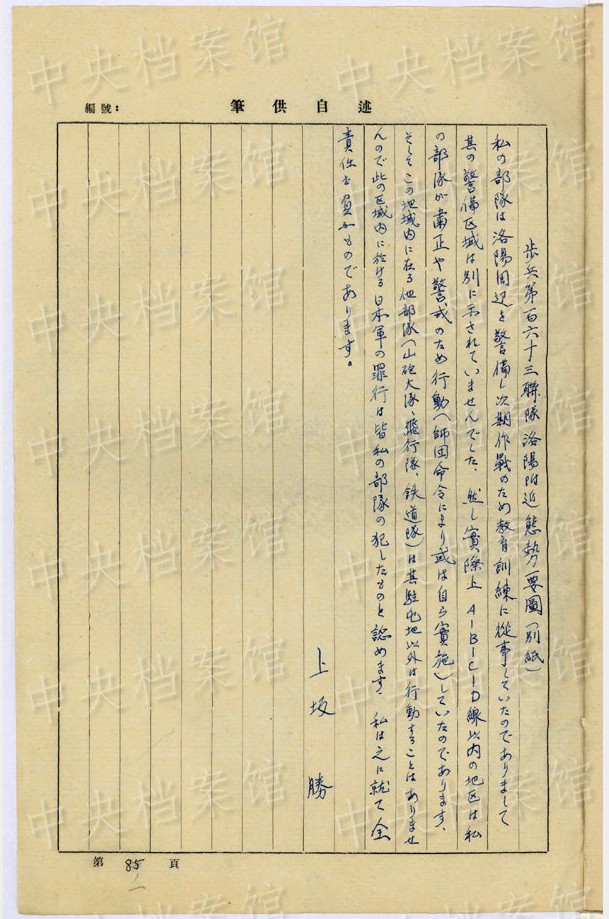 編號：
述自供筆
歩兵第百六十三聯隊洛陽附近態勢要圖(別紙)
私の部隊は洛陽周辺を警備し次期作戦のため教育訓練に從事していたのでありまして
其の警備区域は別に示されていませんでした、然し實際上A-B-C-D線以内の地区は私
の部隊が粛正や警戒のため行動(師団命令により或は自ら實施)していたのであります、
そしてこの地域内に在る他部隊(山砲大隊、飛行隊、鉄道隊)は其駐屯地以外は行動することはありませ
んので此の区域内に於ける日本軍の罪行は皆私の部隊の犯したものと認めます、私は之に就て全
責任を負ふものであります。
上坂勝
第85-1頁
中央档案馆